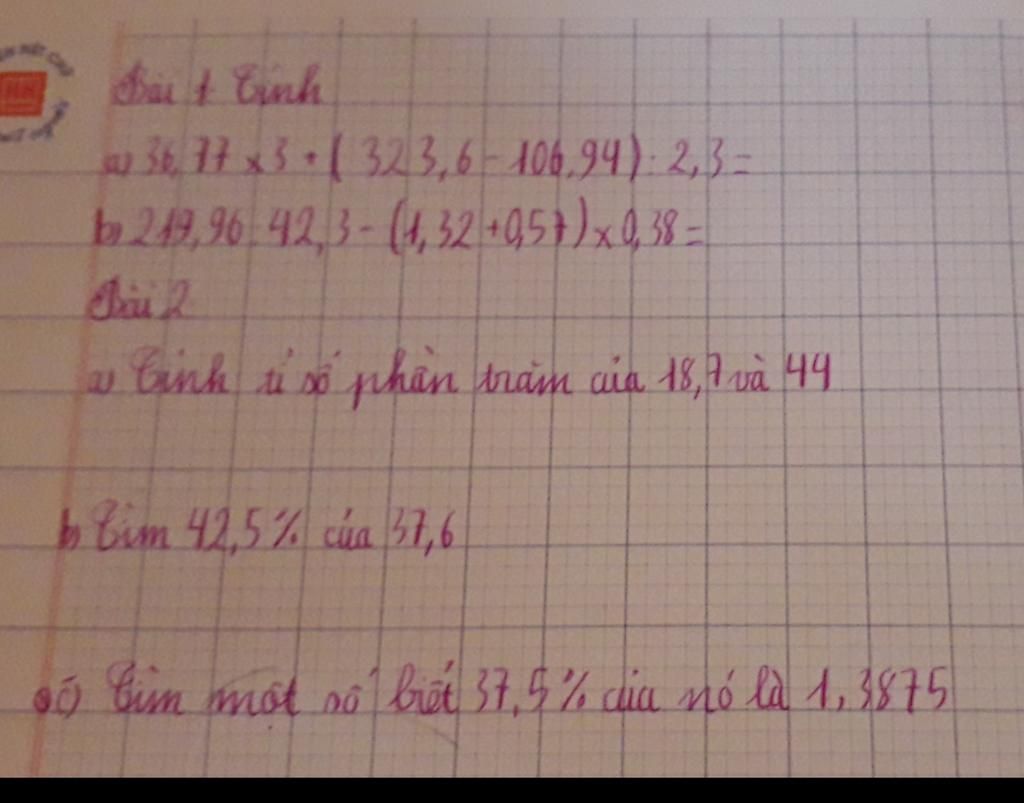 Bài 1 Tính
a) 36,77 x 3 + ( 323,6 - 106,94 ) : 2,3 =
b) 219,96 : 42,3 - (1,32 + 0,57) x 0,38 =
Bài 2
a) Tính tỉ số phần trăm của 18,7 và 44
b) Tìm 42,5% của 37,6
c) Tìm một số biết 37,5% của nó là 1,3875